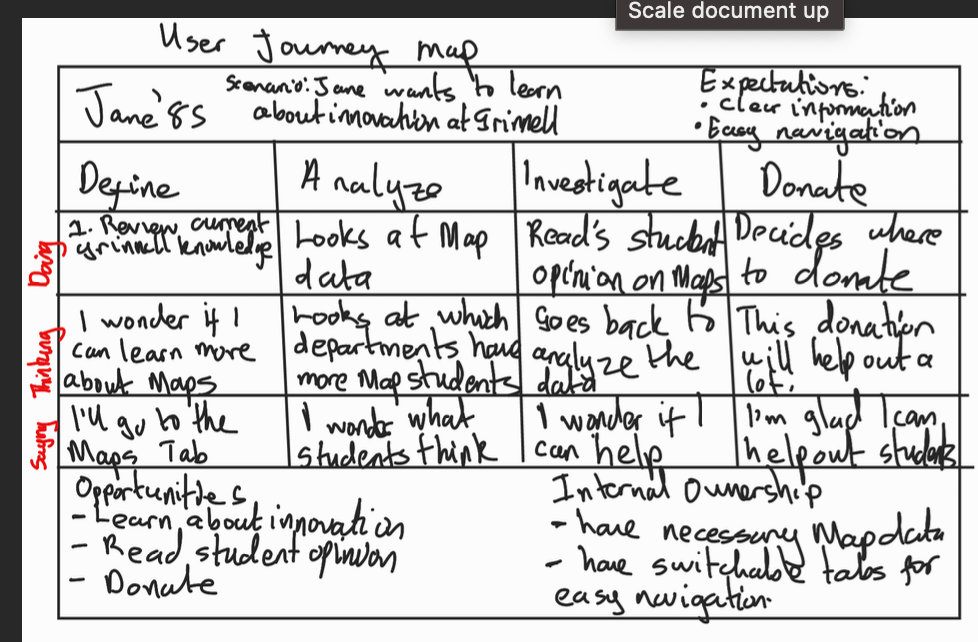 Scale document up
User Journey map
Jane '85
Scenario: Jane wants to learn
about innovation at Grinnell
Expectations:
• Clear information
• Easy navigation
Define
Analyze
Investigate
Donate
Doing
1. Review current
grinnell knowledge
Looks at Map
data
Read's student
opinion on Maps
Decides where
to donate
Thinking
I wonder if I
can learn more
about Maps
Looks at which
departments have
more Map students
Goes back to
analyze the
data
This donation
will help out a
lot.
Saying
I'll go to the
Maps Tab
I wonder what
students think
I wonder if I
can help
I'm glad I can
help out students
Opportunities
- Learn about innovation
- Read student opinion
- Donate
Internal Ownership
- have necessary Map data
- have switchable tabs for
easy navigation.